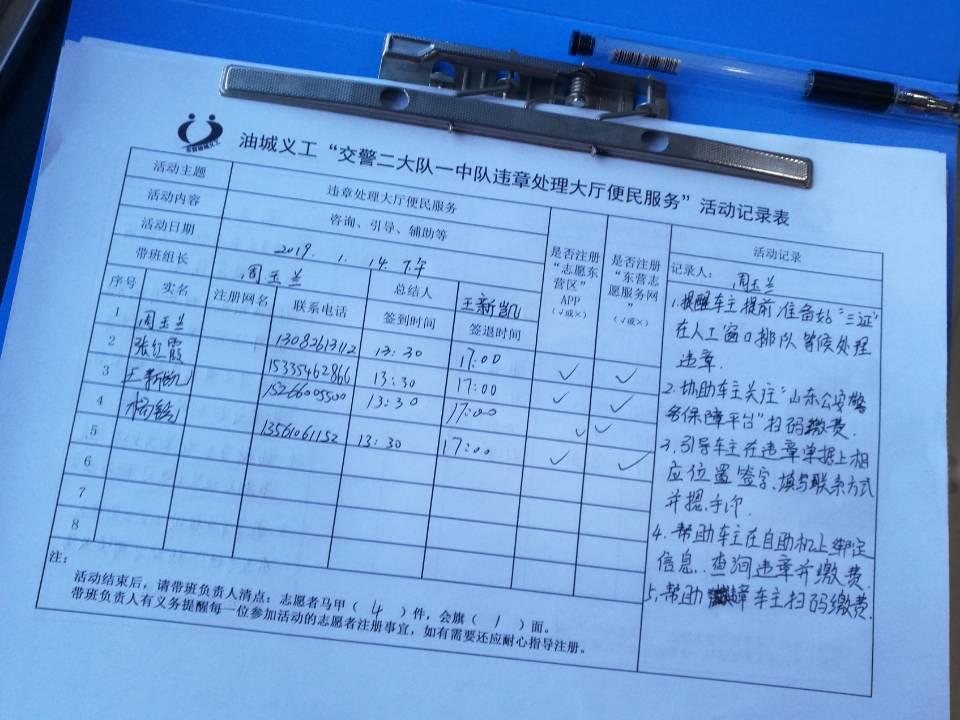 油城义工“交警二大队一中队违章处理大厅便民服务”活动记录表
活动主题 违章处理大厅便民服务
活动内容 咨询、引导、辅助等
活动日期 2019. 1. 14. 下午
带班组长 周玉兰 总结人 王新凯
序号 实名 注册网名 联系电话 签到时间 签退时间
是否注册“志愿东营区”APP（√或×）
是否注册“东营志愿服务网”（√或×）
1 周玉兰 13082613112 13:30 17:00 ✓ ✓
2 张红霞 15335462866 13:30 17:00 ✓ ✓
3 王新凯 15266005500 13:30 17:00 ✓ ✓
4 杨 13561061152 13:30 17:00 ✓ ✓
5
6
7
8
活动记录
记录人： 周玉兰
1.提醒车主提前准备好“三证”
在人工窗口排队等候处理
违章.
2.协助车主关注“山东公安警
务保障平台”扫码缴费.
3.引导车主在违章单据上相
应位置签字、填写联系方式
并摁手印.
4.帮助车主在自助机上绑定
信息..查询违章并缴费.
5.帮助 车主扫码缴费.
注：
活动结束后，请带班负责人清点：志愿者马甲（ 4 ）件，会旗（ 1 ）面。
带班负责人有义务提醒每一位参加活动的志愿者注册事宜，如有需要还应耐心指导注册。